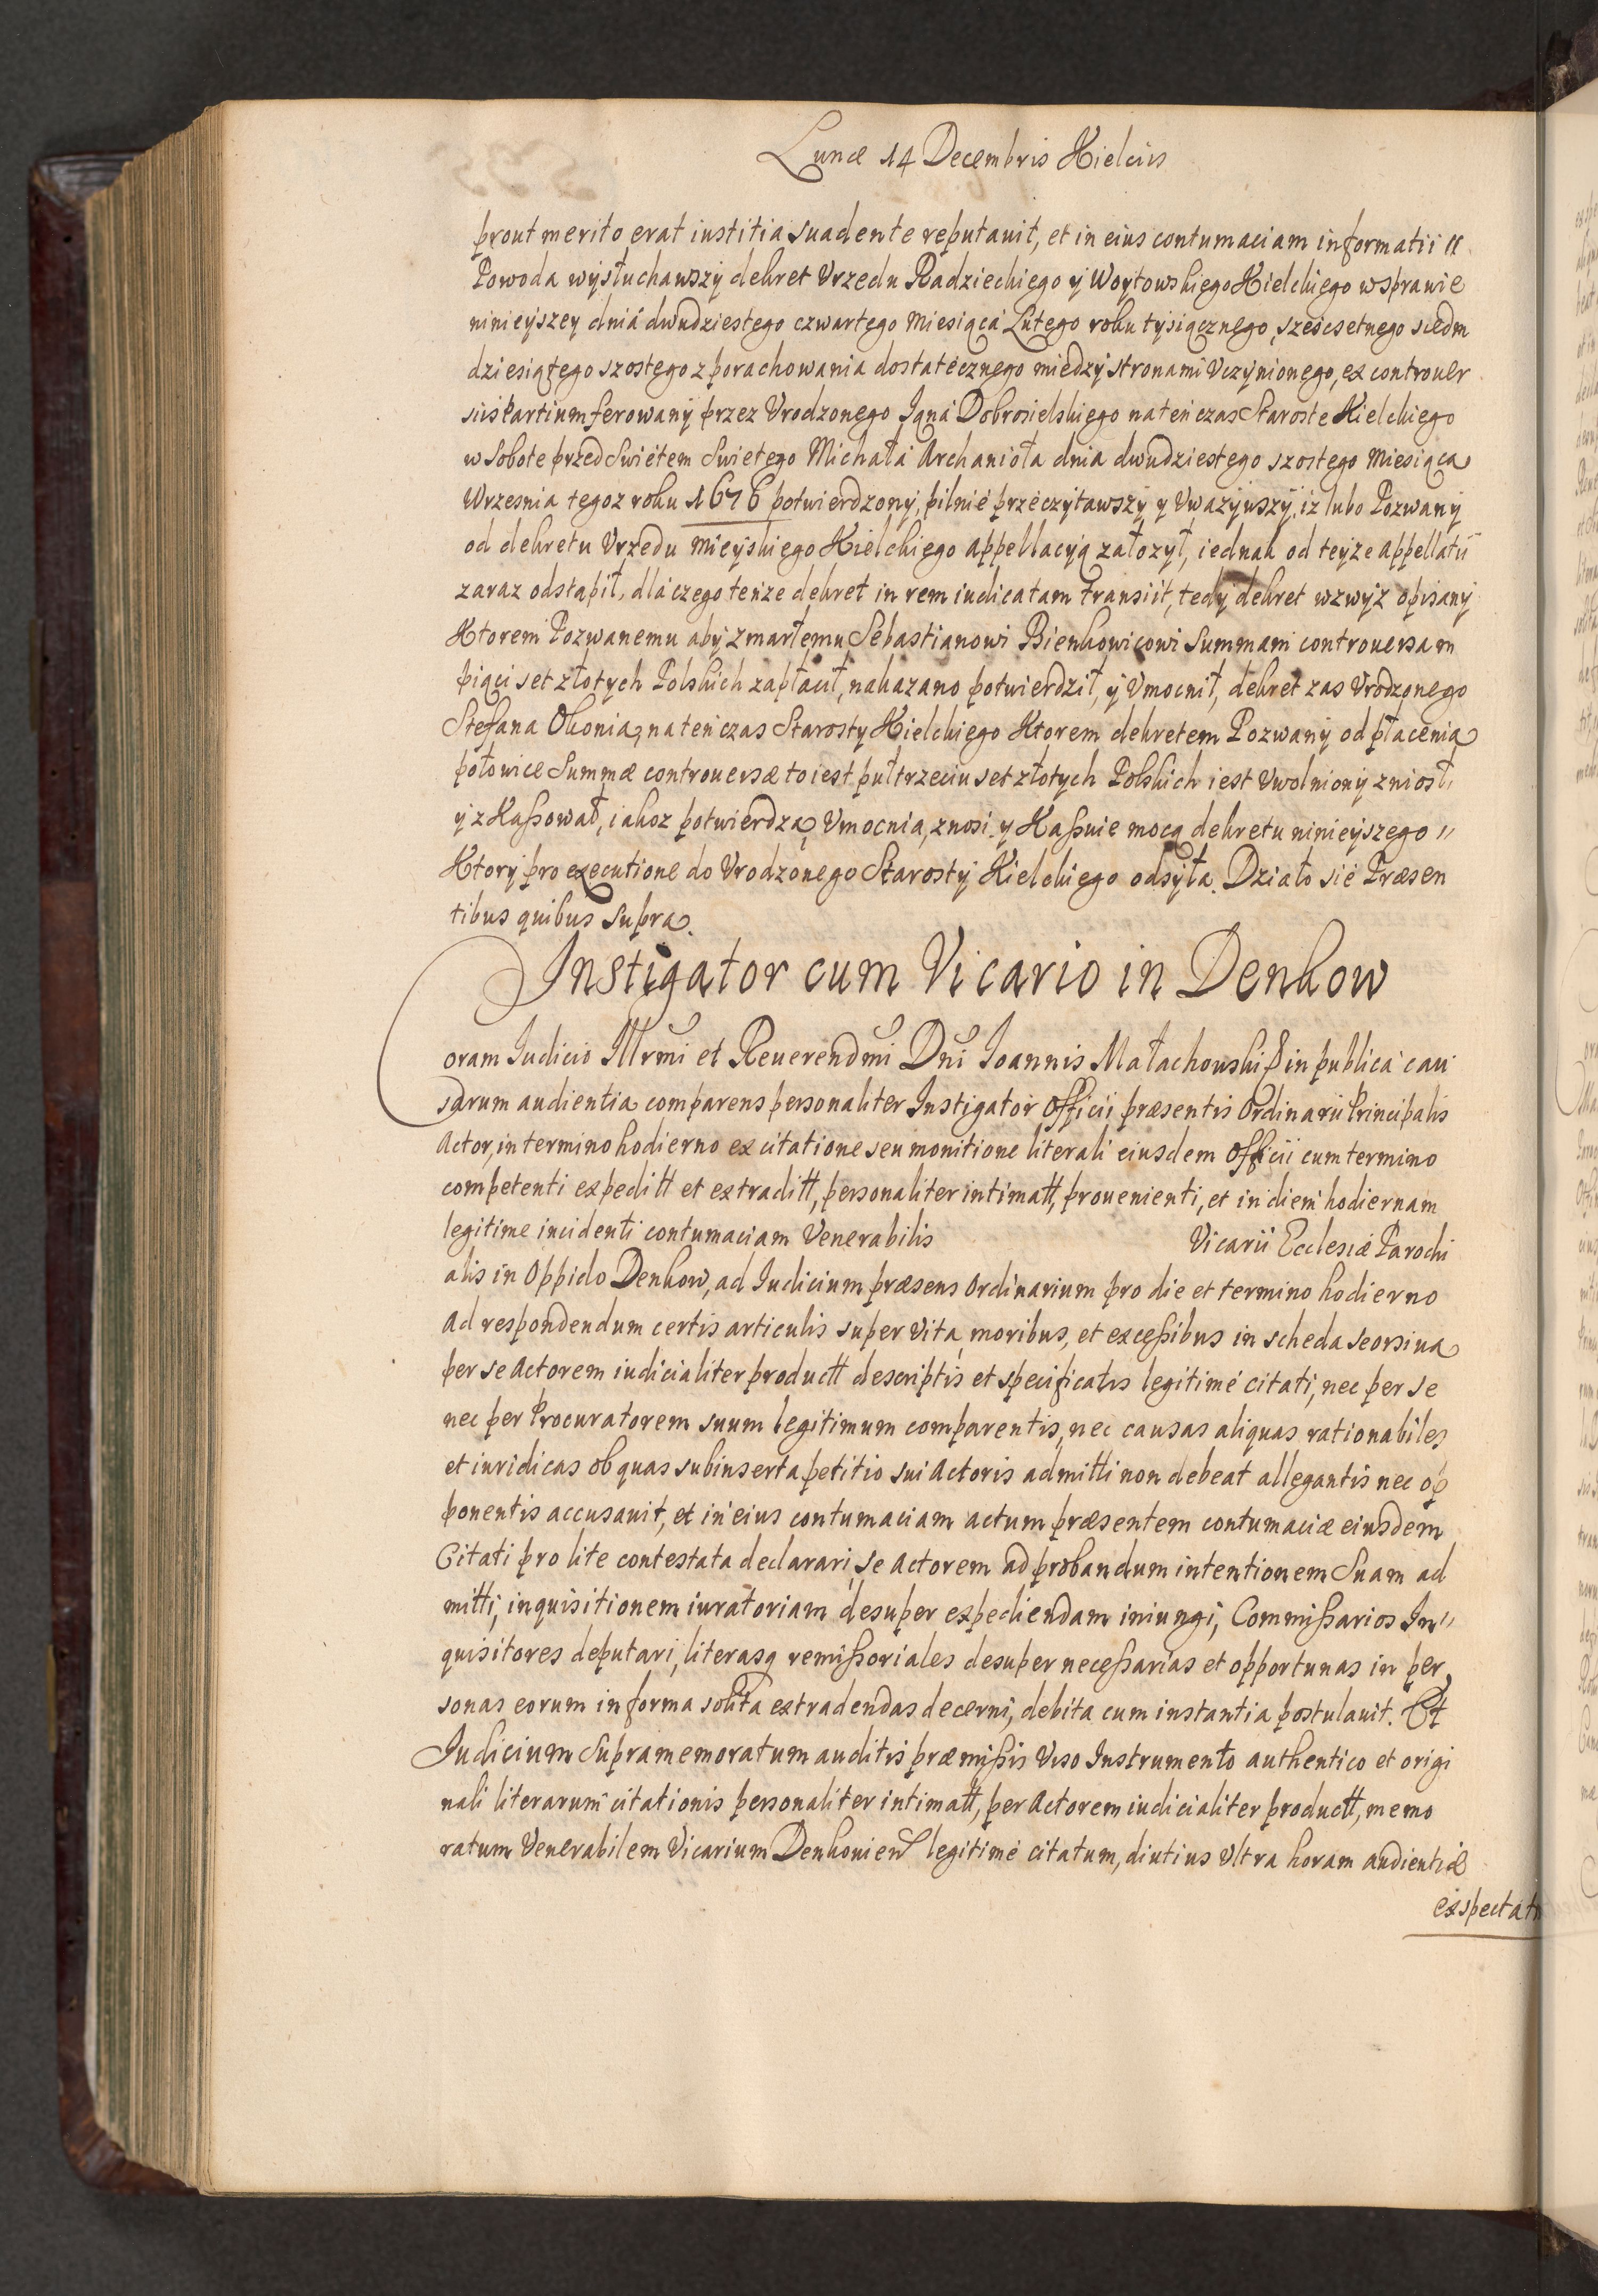 Lunæ 14 Decembris Kielciis
prout merito erat iustitia suadente reputauit, et in eius contumaciam informatii //
Powoda wysłuchawszy dekret Vrzedu Radzieckiego y Woytowskiego Kielckiego w sprawie
ninieyszey dnia dwudziestego czwartego Miesiąca Lutego roku tysiącznego, sześcsetnego siedm
dziesiątego szostego z porachowania dostatecznego miedzy stronami Vczynionego, ex controuer
siis Partium ferowany przez Vrodzonego Jana Dobrosielskiego natenczas Staroste Kielckiego
w Sobote przed Swiętem Swietego Michała Archanioła dnia dwudziestego szostego Miesiąca
Wrzesnia tegoz roku 1676 potwierdzony, pilnie przeczytawszy y Vwazywszy, iz lubo Pozwany
od dekretu Vrzedu Mieyskiego Kielckiego appellacyą załozył, iednak od teyze appellatii
zaraz odstapił, dla czego tenze dekret in rem iudicatam transiit, tedy dekret wzwyz opisany
Ktorem Pozwanemu aby zmarłemu Sebastianowi Bienkowicowi Summam controuersam
piąci set złotych Polskich zapłacił, nakazano potwierdził, y Vmocnił, dekret zas Vrodzonego
Stefana Okonia, natenczas Starosty Kielckiego Ktorem dekretem Pozwany od płacenia
połowice Summæ controuersæ to iest pułtrzeciu set złotych Polskich iest Vwolniony zniosł,
y zKaßował, iakoz potwierdza, Vmocnia, znosi, y Kaßuie mocą dekretu ninieyszego //
Ktory pro executione do Vrodzonego Starosty Kielckiego odsyła. Działo sie Præsen
tibus quibus supra.
Instigator cum Vicario in Denkow
Coram Iudicio Illrmi et Reuerendmi Dni Ioannis Małachowski in publica cau
sarum audientia comparens personaliter Instigator Officii præsentis Ordinarii Principalis
Actor, in termino hodierno ex citatione seu monitione literali eiusdem Officii cum termino
competenti expeditt et extraditt, personaliter intimatt, prouenienti, et in diem hodiernam
legitime incidenti contumaciam Venerabilis Vicarii Ecclesiæ Parochi
alis in Oppido Denkow, ad Iudicium præsens Ordinarium pro die et termino hodierno
Ad respondendum certis articulis super Vita, moribus, et exceßibus in scheda seorsiua
per se Actorem iudicialiter productt descriptis et specificatis legitime citati, nec per se
nec per Procuratorem suum legitimum comparentis, nec causas aliquas rationabiles
et iuridicas ob quas subinserta petitio sui Actoris admitti non debeat allegantis nec op
ponentis accusauit, et in eius contumaciam actum præsentem contumaciæ eiusdem
Citati pro lite contestata declarari, se Actorem ad probandum intentionem Suam ad
mitti, inquisitionem iuratoriam desuper expediendam iniungi, Commißarios In//
quisitores deputari, literasq remißoriales desuper neceßarias et opportunas in per
sonas eorum in forma solita extradendas decerni, debita cum instantia postulauit. Et
Iudicium Supramemoratum auditis præmißis Viso Instrumento authentico et origi
nali literarum citationis personaliter intimatt, per Actorem iudicialiter productt, memo
ratum Venerabilem Vicarium Denkouien legitime citatum, diutius Vltra horam audientiæ